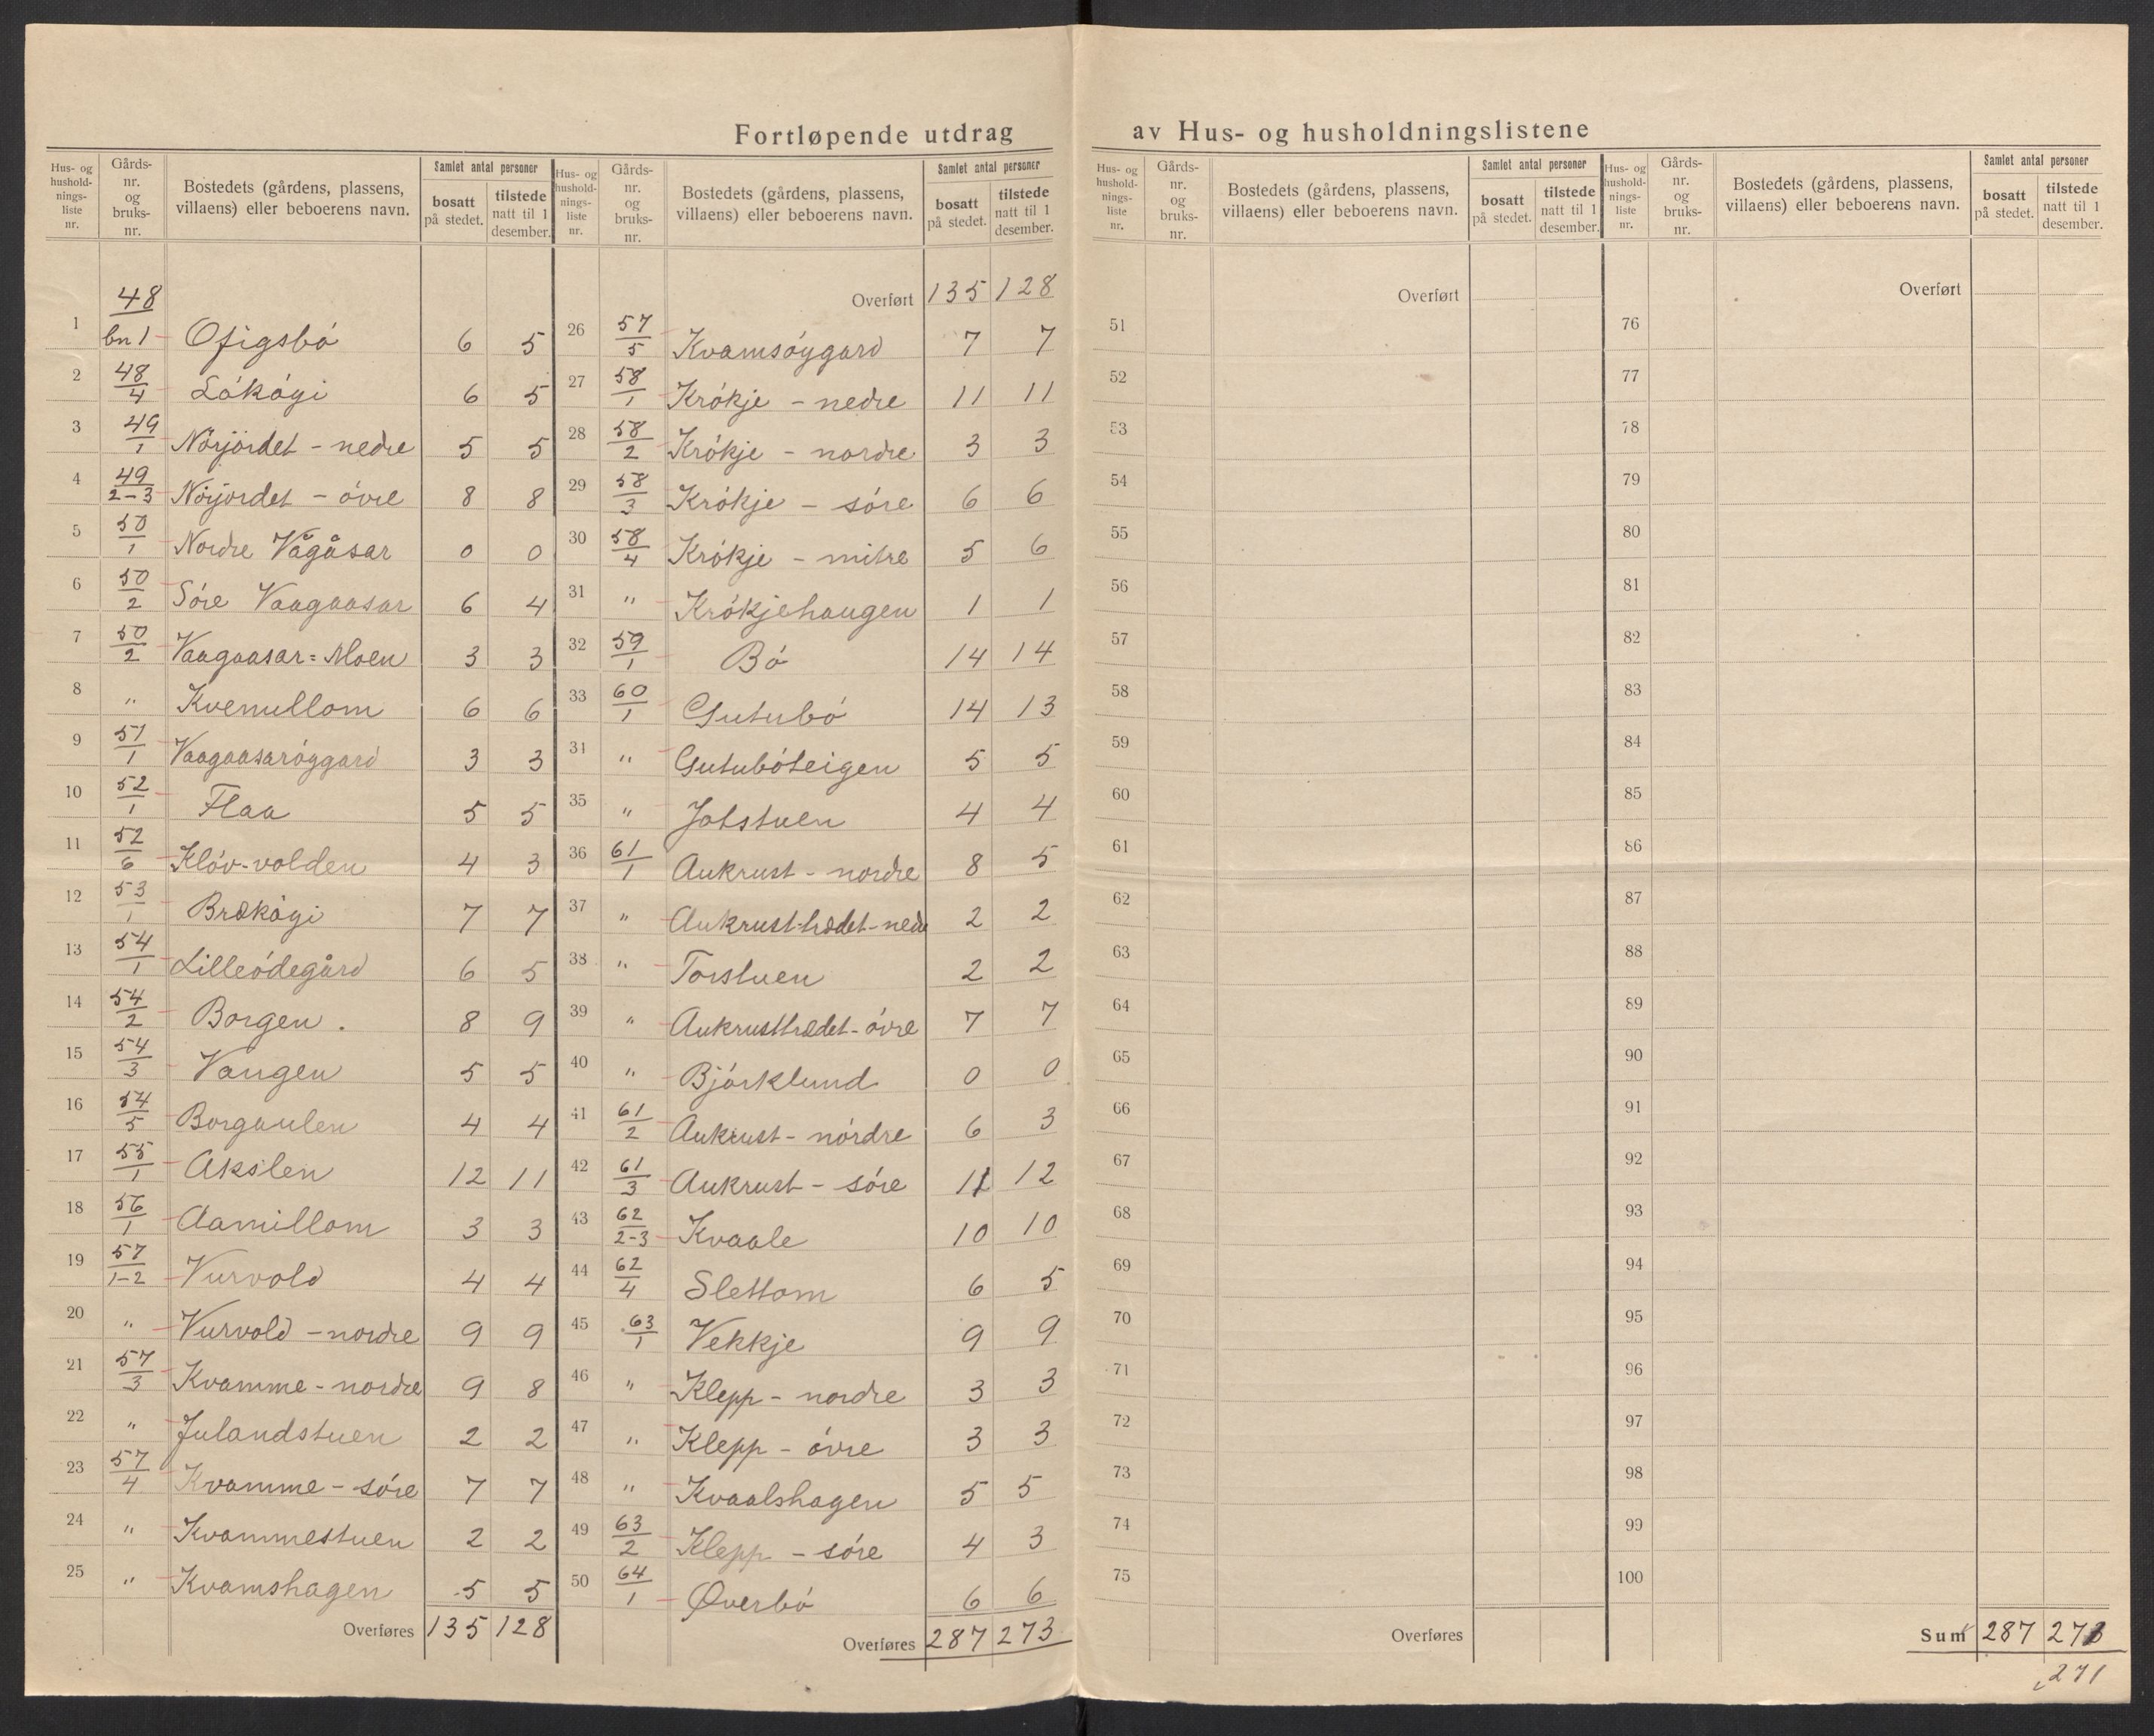 Fortløpende utdrag av Hus- og husholdningslistene
Hus- og hushold-nings-liste nr. Gårds-nr. og bruks-nr. Bostedets (gårdens, plassens, villaens) eller beboerens navn. Samlet antal personer bosatt på stedet. tilstede natt til 1 desember.
48
1 bn 1 Ofigsbó 6 5
2 48/4 Lókógi 6 5
3 49/1 Nörjordet - nedre 5 5
4 49/2-3 Nörjordet - óvre 8 8
5 50/1 Nordre Vågåsar 0 0
6 50/2 Sóre Vaagaasar 6 4
7 50/2 Vaagaasar=Moen 3 3
8 " Kvenullom 6 6
9 51/1 Vaagaasaróygard 3 3
10 52/1 Flaa 5 5
11 52/6 Klóv-volden 4 3
12 53/1 Brækógi 7 7
13 54/1 Lilleódegård 6 5
14 54/2 Borgen . 8 9
15 54/3 Vangen 5 5
16 54/5 Borgaulen 4 4
17 55/1 Akslen 12 11
18 56/1 Aamillom 3 3
19 57/1-2 Vurvold 4 4
20 " Vurvold - nordre 9 9
21 57/3 Kvamme - nordre 9 8
22 " Julandstuen 2 2
23 57/4 Kvamme - sóre 7 7
24 " Kvammestuen 2 2
25 " Kvamshagen 5 5
Overføres 135 128
Hus- og hushold-nings-liste nr. Gårds-nr. og bruks-nr. Bostedets (gårdens, plassens, villaens) eller beboerens navn. Samlet antal personer bosatt på stedet. tilstede natt til 1 desember.
Overført 135 128
26 57/5 Kvamsóygard 7 7
27 58/1 Krókje - nedre 11 11
28 58/2 Krókje - nordre 3 3
29 58/3 Krókje - sóre 6 6
30 58/4 Krókje - mitre 5 6
31 " Krókjehaugen 1 1
32 59/1 Bó 14 14
33 60/1 Gutubó 14 13
34 " Gutubóteigen 5 5
35 " Jotstuen 4 4
36 61/1 Aukrust - nordre 8 5
37 " Aukrust-trædet-nedre 2 2
38 " Torstuen 2 2
39 " Aukrusttrædet - óvre 7 7
40 " Bjórklund 0 0
41 61/2 Aukrust - nórdre 6 3
42 61/3 Aukrust - sóre 11 12
43 62/2-3 Kvaale 10 10
44 62/4 Slettom 6 5
45 63/1 Vekkje 9 9
46 " Klepp - nordre 3 3
47 " Klepp - óvre 3 3
48 " Kvaalshagen 5 5
49 63/2 Klepp - sóre 4 3
50 64/1 Øverbó 6 6
Overføres 287 273
Hus- og hushold-nings-liste nr. Gårds-nr. og bruks-nr. Bostedets (gårdens, plassens, villaens) eller beboerens navn. Samlet antal personer bosatt på stedet. tilstede natt til 1 desember.
Overført
51
52
53
54
55
56
57
58
59
60
61
62
63
64
65
66
67
68
69
70
71
72
73
74
75
Overføres
Hus- og hushold-nings-liste nr. Gårds-nr. og bruks-nr. Bostedets (gårdens, plassens, villaens) eller beboerens navn. Samlet antal personer bosatt på stedet. tilstede natt til 1 desember.
Overført
76
77
78
79
80
81
82
83
84
85
86
87
88
89
90
91
92
93
94
95
96
97
98
99
100
Sum 287 273
271